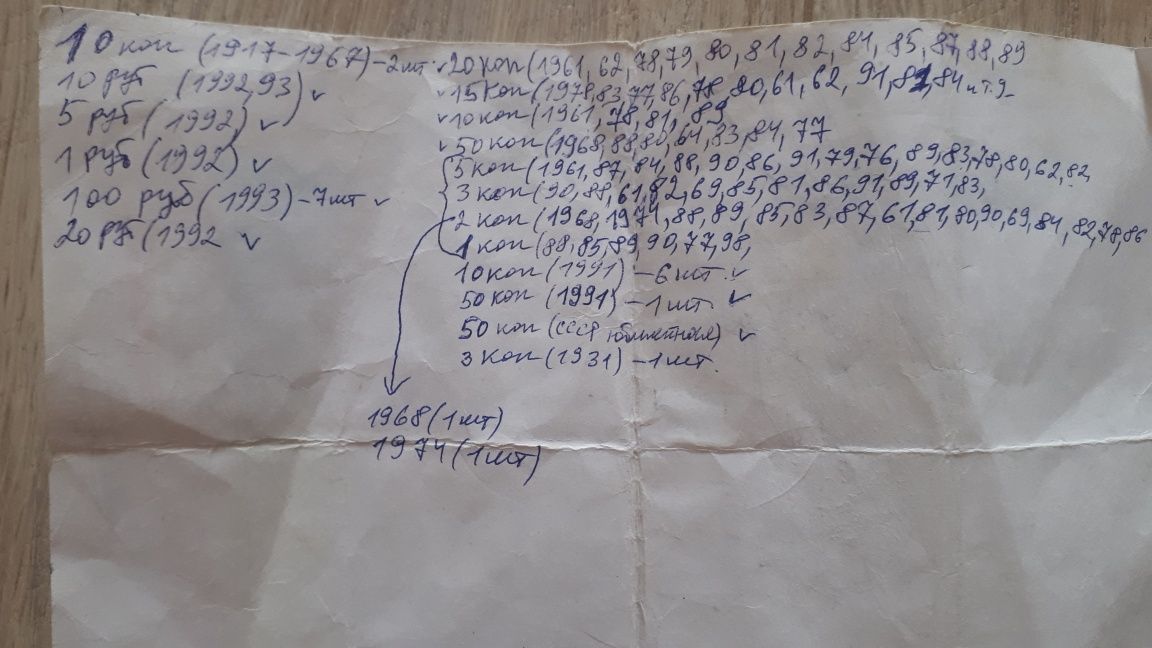 10 коп (1917-1967) - 2 шт.
10 руб (1992,93) ✓
5 руб (1992) ✓
1 руб (1992) ✓
100 руб (1993) - 7 шт ✓
20 руб (1992 ✓
✓ 20 коп (1961, 62, 78, 79, 80, 81, 82, 84, 85, 87, 88, 89
✓ 15 коп (1978, 83, 77, 86, 78, 90, 61, 62, 91, 82, 84 и т.д
✓ 10 коп (1961, 78, 81, 89
✓ 50 коп (1968, 88, 80, 64, 83, 84, 77
5 коп (1961, 87, 84, 88, 90, 86, 91, 79, 76, 89, 83, 78, 80, 62, 82,
3 коп (90, 88, 61, 82, 69, 85, 81, 86, 91, 89, 71, 83,
2 коп (1968, 1974, 88, 89, 85, 83, 87, 61, 81, 80, 90, 69, 84, 82, 78, 86
1 коп (88, 85, 89, 90, 77, 98,
10 коп (1991) - 6 шт. ✓
50 коп (1991) - 1 шт. ✓
50 коп (СССР юбилейная) ✓
3 коп (1931) - 1 шт.
1968 (1 шт)
1974 (1 шт)